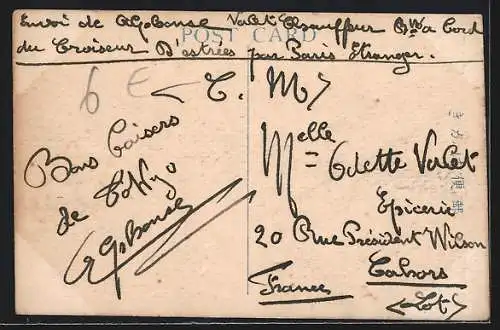 Envoi de Alphonse Valet Chauffeur Bvté a bord
POST CARD
du Croiseur D'estrées par Paris Etranger.
6 E
Bons baisers
de Tokyo
Alphonse
Melle
Odette Valet
Epicerie
20 Rue Président Wilson
Cahors
<Lot>
France